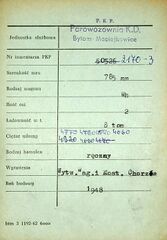 P. K. P.
Jednostka służbowa
Parowozownia K.D.
Bytom-Maciejkowice
Nr inwentarza PKP
60525 2170-3
Szerokość toru
785 mm
Rodzaj wagonu
Wh
Ilość osi
2
Ładowność w t
8 ton
Ciężar własny
4770 4060
4320
Rodzaj hamulca
ręczny
Wytwórnia
Wytw. Wag. i Most. Chorzów
Rok budowy
1948